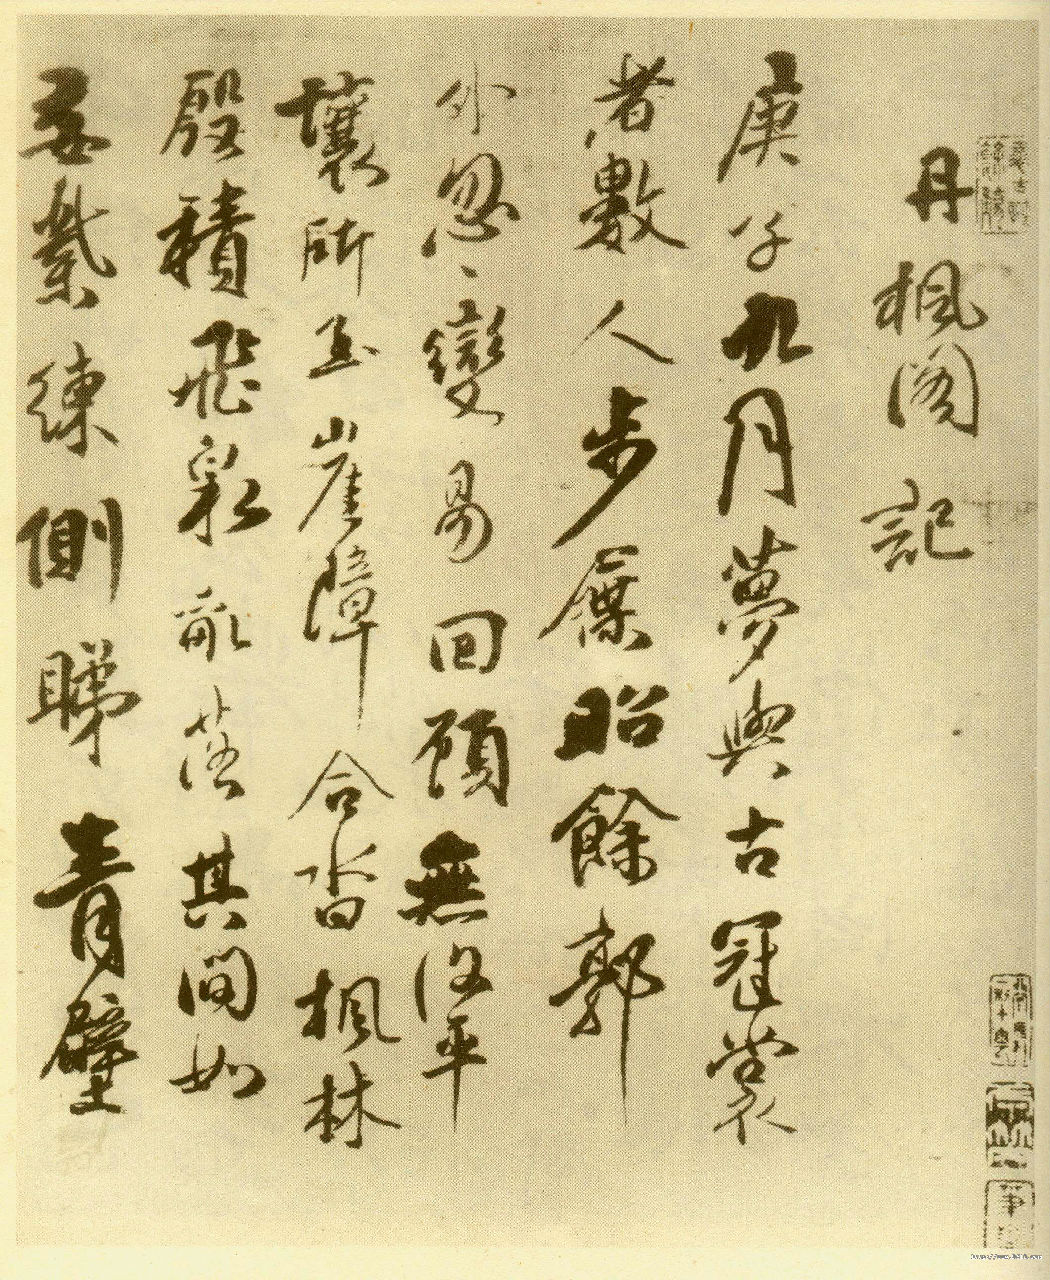 丹楓閣記
庚子九月夢與古冠裳
者數人步屧昭餘郭
外忽〻變易回顧無復平
壤所至崖障合沓楓林
殷積飛泉亂蔭其間如
紫練側睇青壁